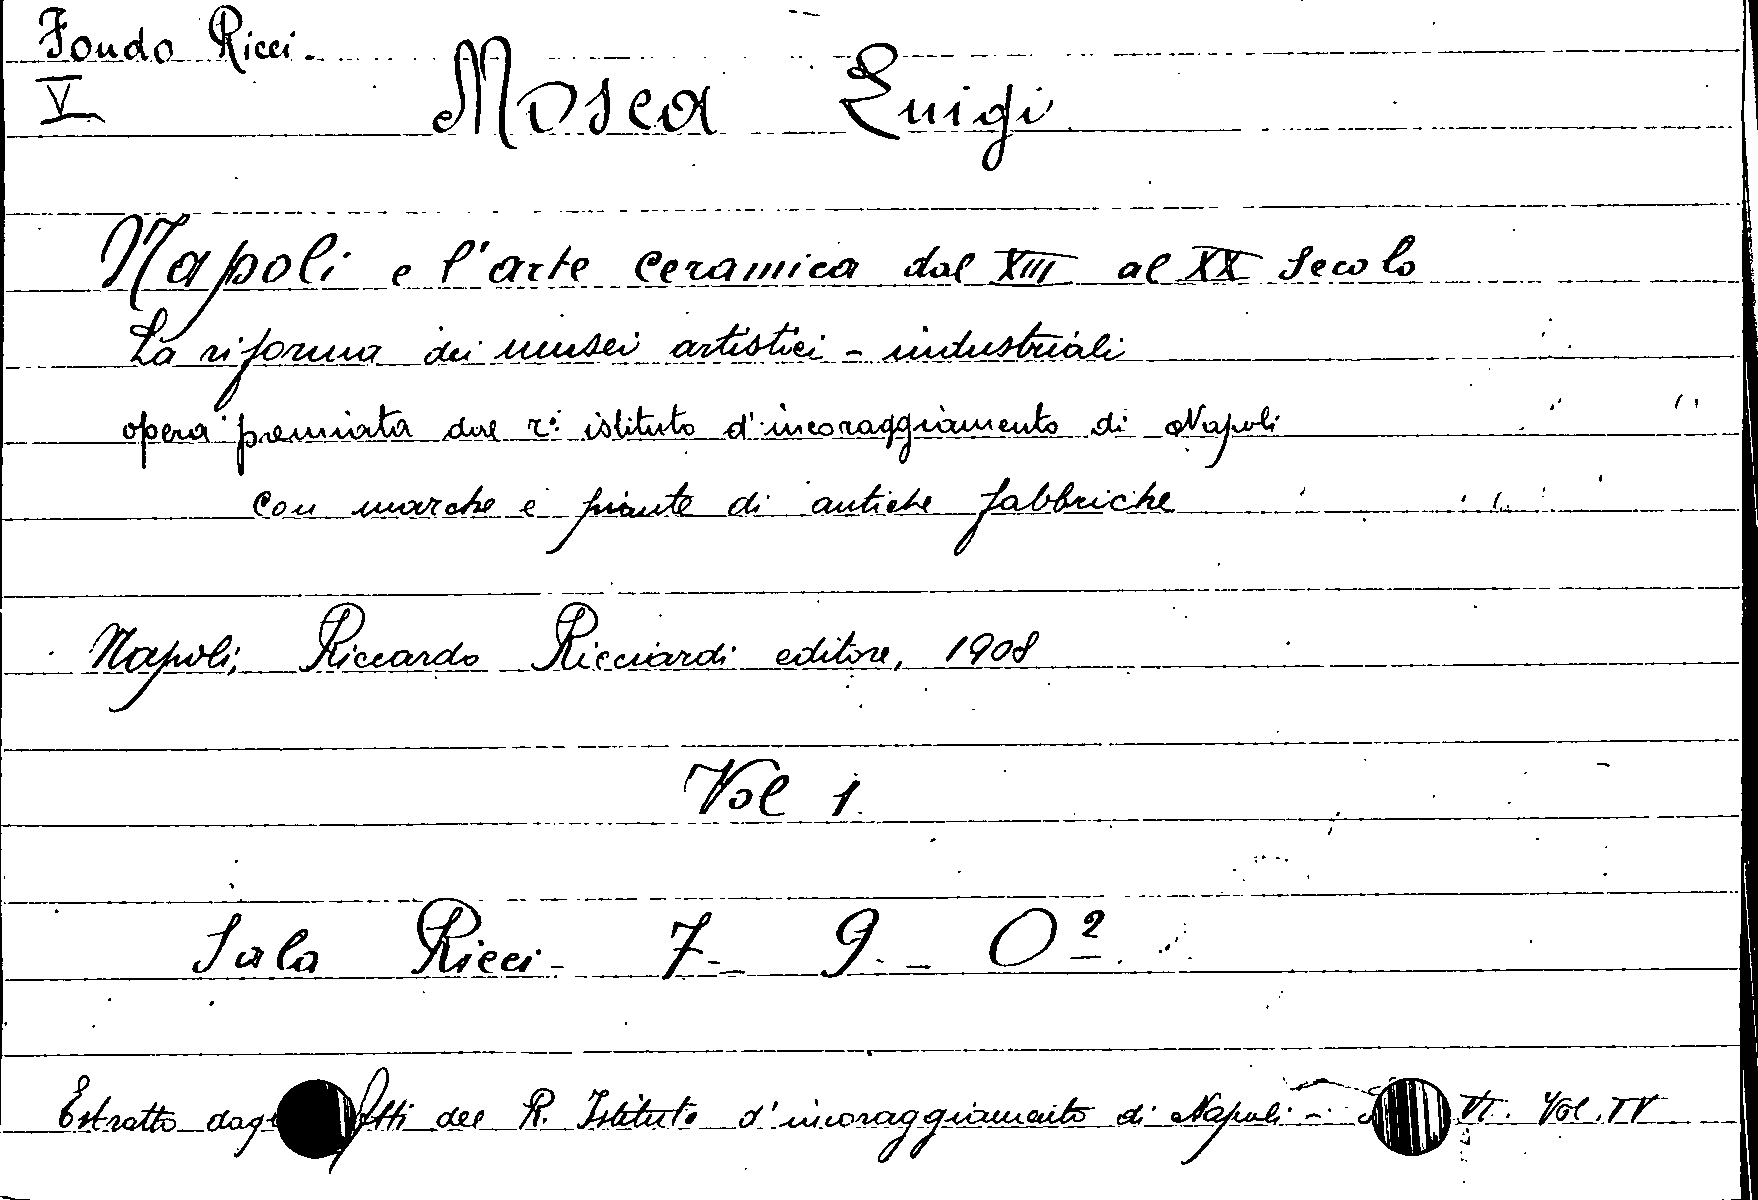 Fondo Ricci.
V
Mosca Luigi
Napoli e l'arte ceramica dal XIII al XX secolo
La riforma dei musei artistici - industriali
opera premiata dal r. istituto d'incoraggiamento di Napoli
con marche e piante di antiche fabbriche
Napoli, Riccardo Ricciardi editore, 1908
Vol 1.
Sala Ricci - 7 - 9 - O2
Estratto dag Atti del R. Istituto d'incoraggiamento di Napoli - VI. Vol. IV